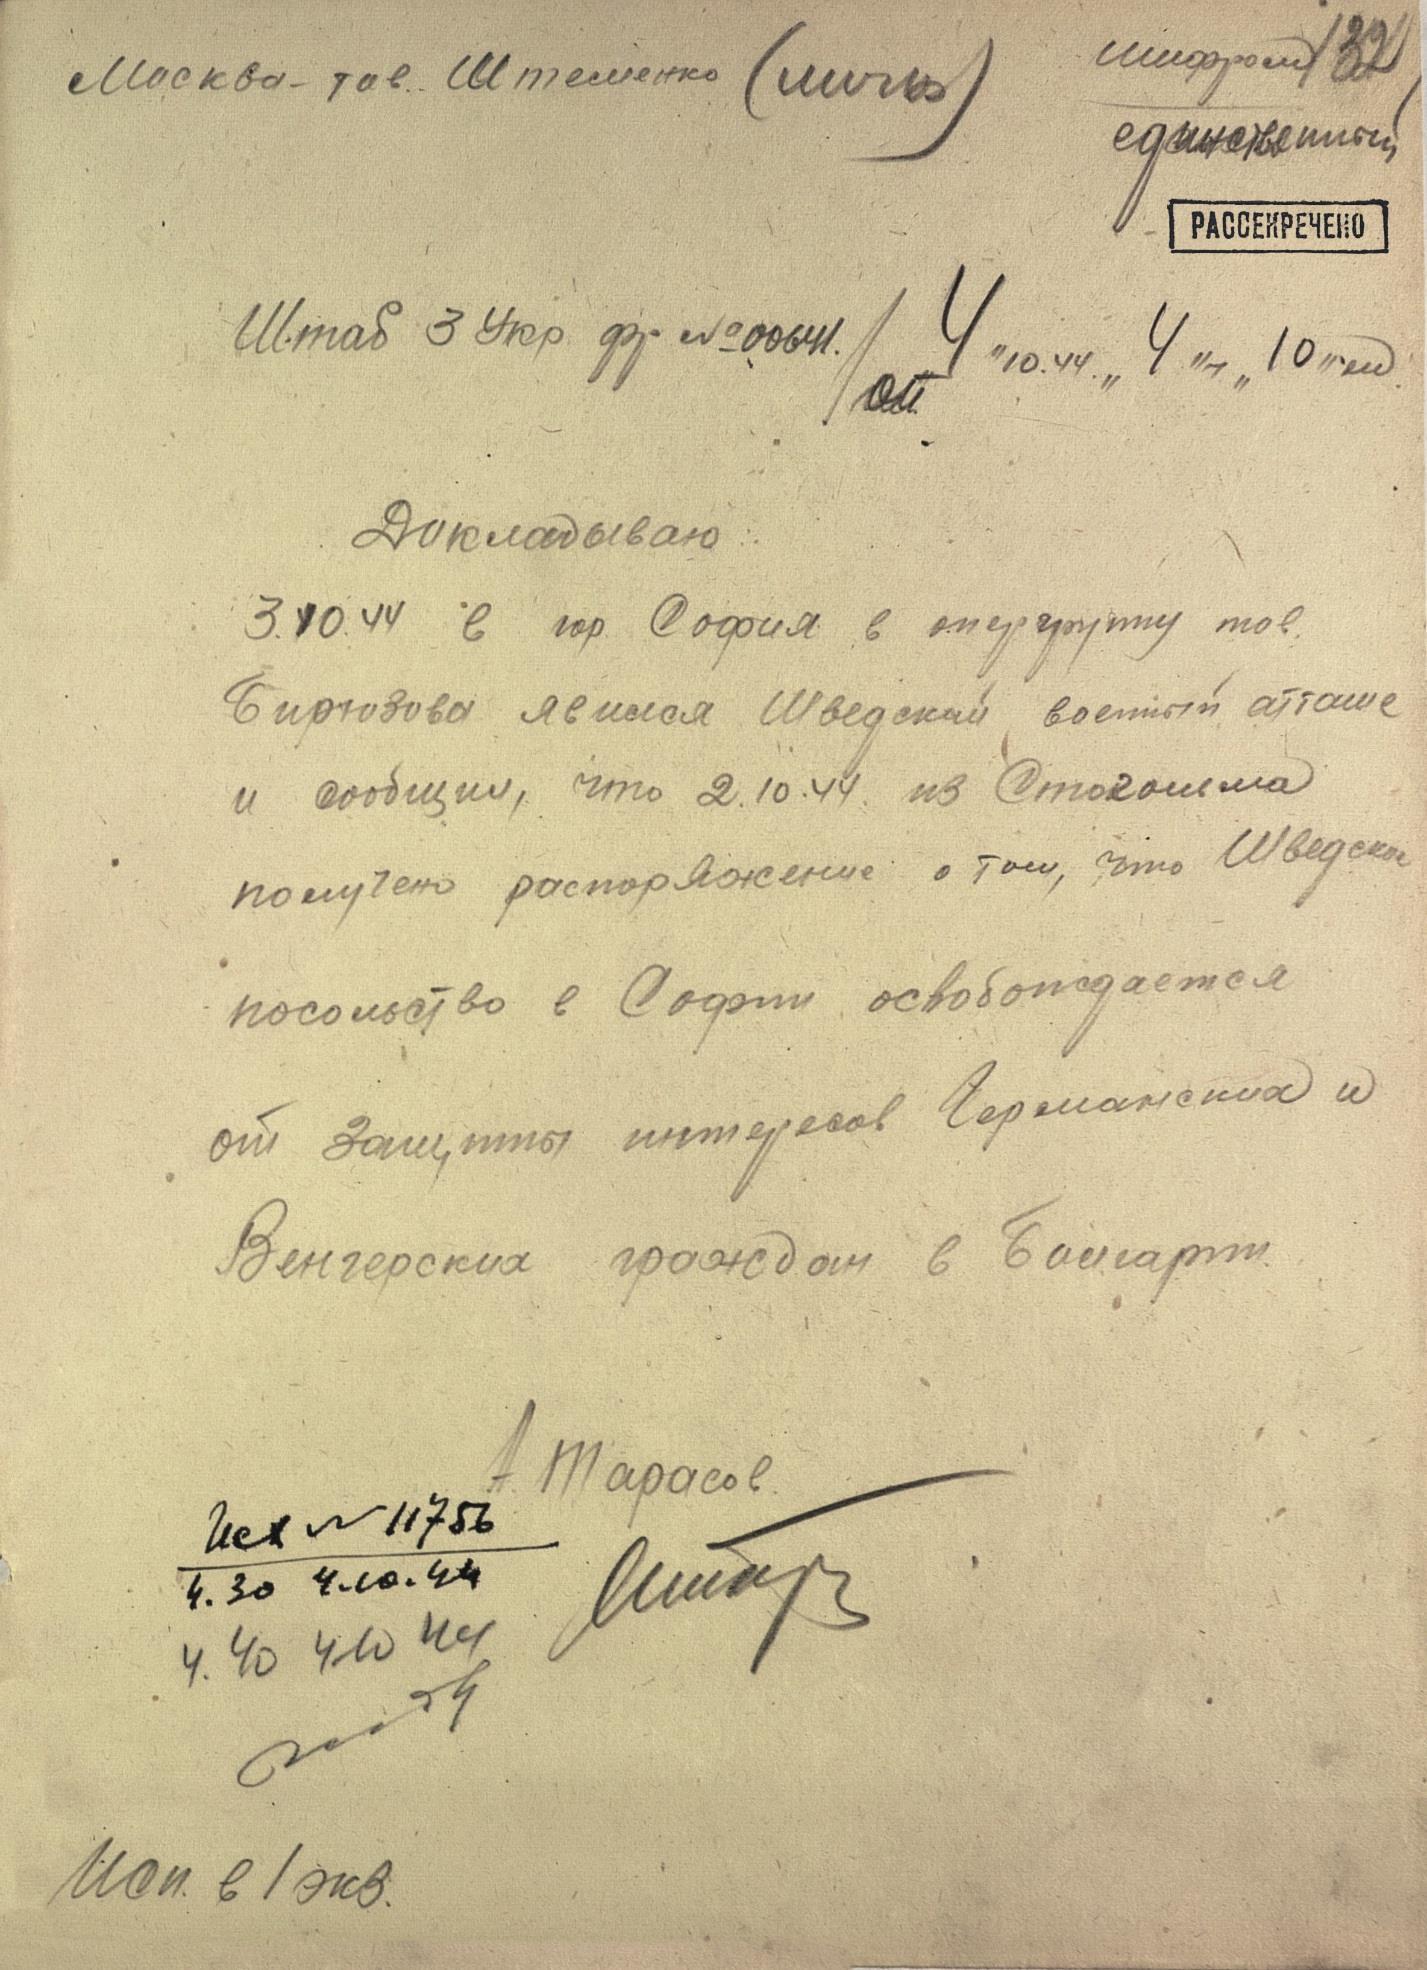 Москва - тов. Штеменко (лично)
шифром 132
единственный
РАССЕКРЕЧЕНО
Штаб 3 Укр фр № 00641. / от "4" 10.44. "4" ч "10" мин
Докладываю:
3.10.44 в гор София в опергруппу тов.
Бирюзова явился Шведский военный атташе
и сообщил, что 2.10.44. из Стокгольма
получено распоряжение о том, что Шведское
посольство в Софии освобождается
от защиты интересов Германских и
Венгерских граждан в Болгарии.
А Тарасов.
Исх № 11756
4.30 4.10.44
4.40 4.10 44
Исп. в 1 экз.